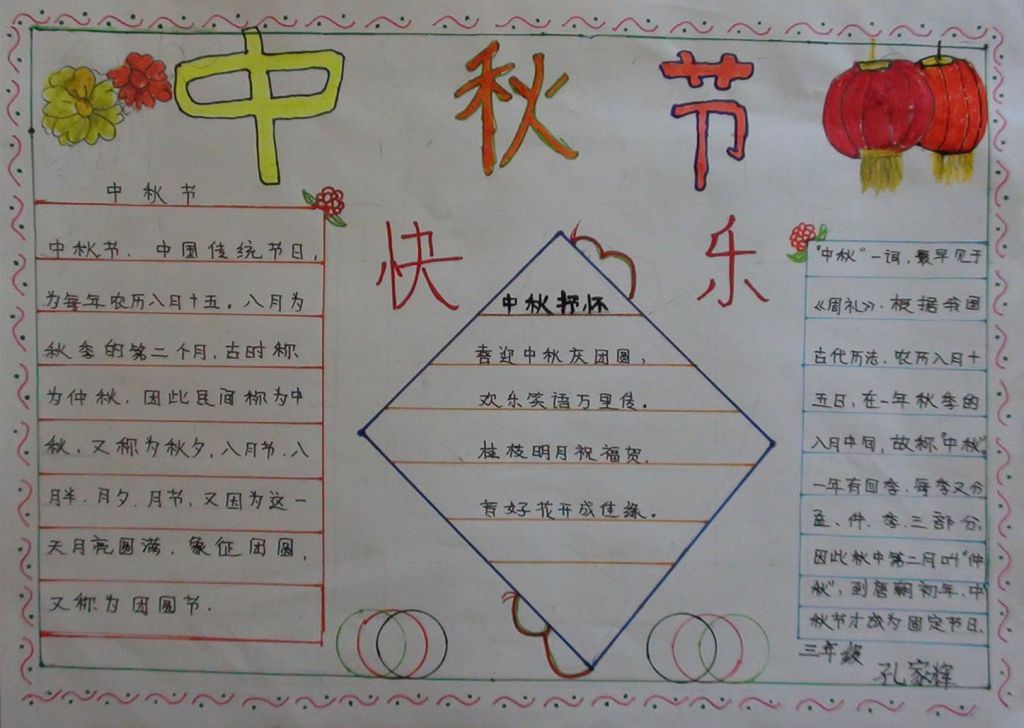 中秋节
快乐
中秋节
中秋节、中国传统节日,
为每年农历八月十五。八月为
秋季的第二个月,古时称
为仲秋,因此民间称为中
秋,又称为秋夕,八月节.八
月半.月夕.月节,又因为这一
天月亮圆满,象征团圆,
又称为团圆节.
中秋抒怀
喜迎中秋庆团圆,
欢乐笑语万里传。
桂枝明月祝福贺,
育好花开成佳缘。
"中秋"一词,最早见于
《周礼》.根据我国
古代历法,农历八月十
五日,在一年秋季的
八月中旬,故称"中秋"
一年有四季,每季又分
孟、仲、季、三部分,
因此秋中第二月叫"仲
秋",到唐朝初年,中
秋节才成为固定节日、
三年级
孔家辉